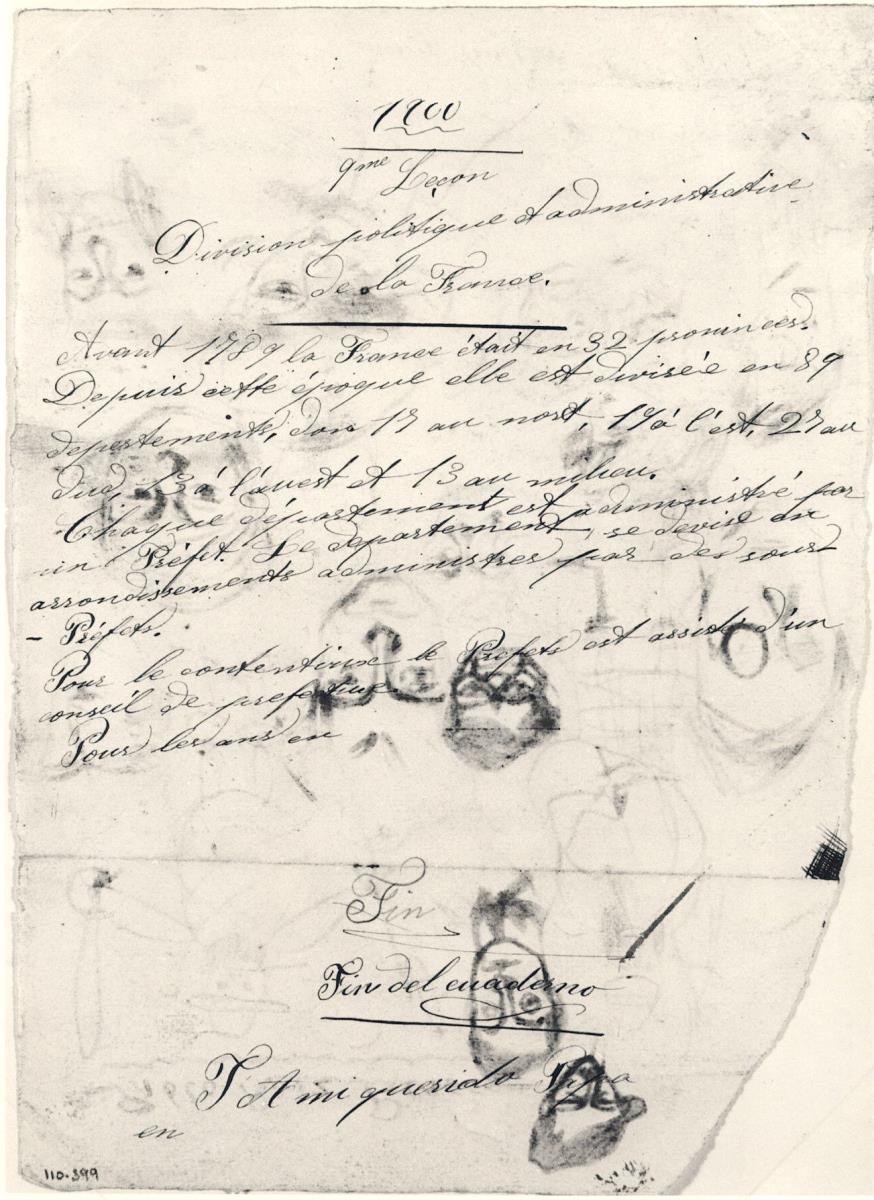 1900
9me Leçon
Division politique et administrative
de la France.
Avant 1789 la France était en 32 provinces.
Depuis cette époque elle est divisée en 89
depertements, don 17 au nort, 17 à l'est, 27 au
sud, 13 à l'ouest et 13 au milieu.
Chaque département est administré par
un Préfet. Le departement, se devise en
arrondissements administres par des sous
- Préfets.
Pour le contentieux le Prefets est assiste d'un
conseil de prefecture.
Pour les ans en
Fin
Fin del cuaderno
T A mi querido
en
110.399